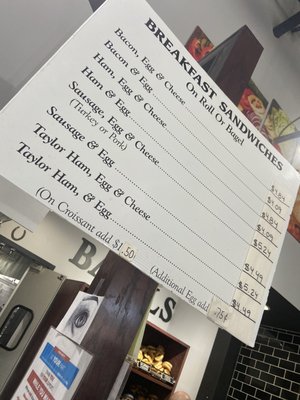 BREAKFAST SANDWICHES
On Roll Or Bagel
Bacon, Egg & Cheese $4.84
Bacon & Egg $4.09
Ham, Egg & Cheese $4.84
Ham & Egg $4.09
Sausage, Egg & Cheese $5.24
(Turkey or Pork)
Sausage & Egg $4.49
Taylor Ham, Egg & Cheese $5.24
Taylor Ham, & Egg $4.49
(On Croissant add $1.50) (Additional Egg add .75¢)
BA